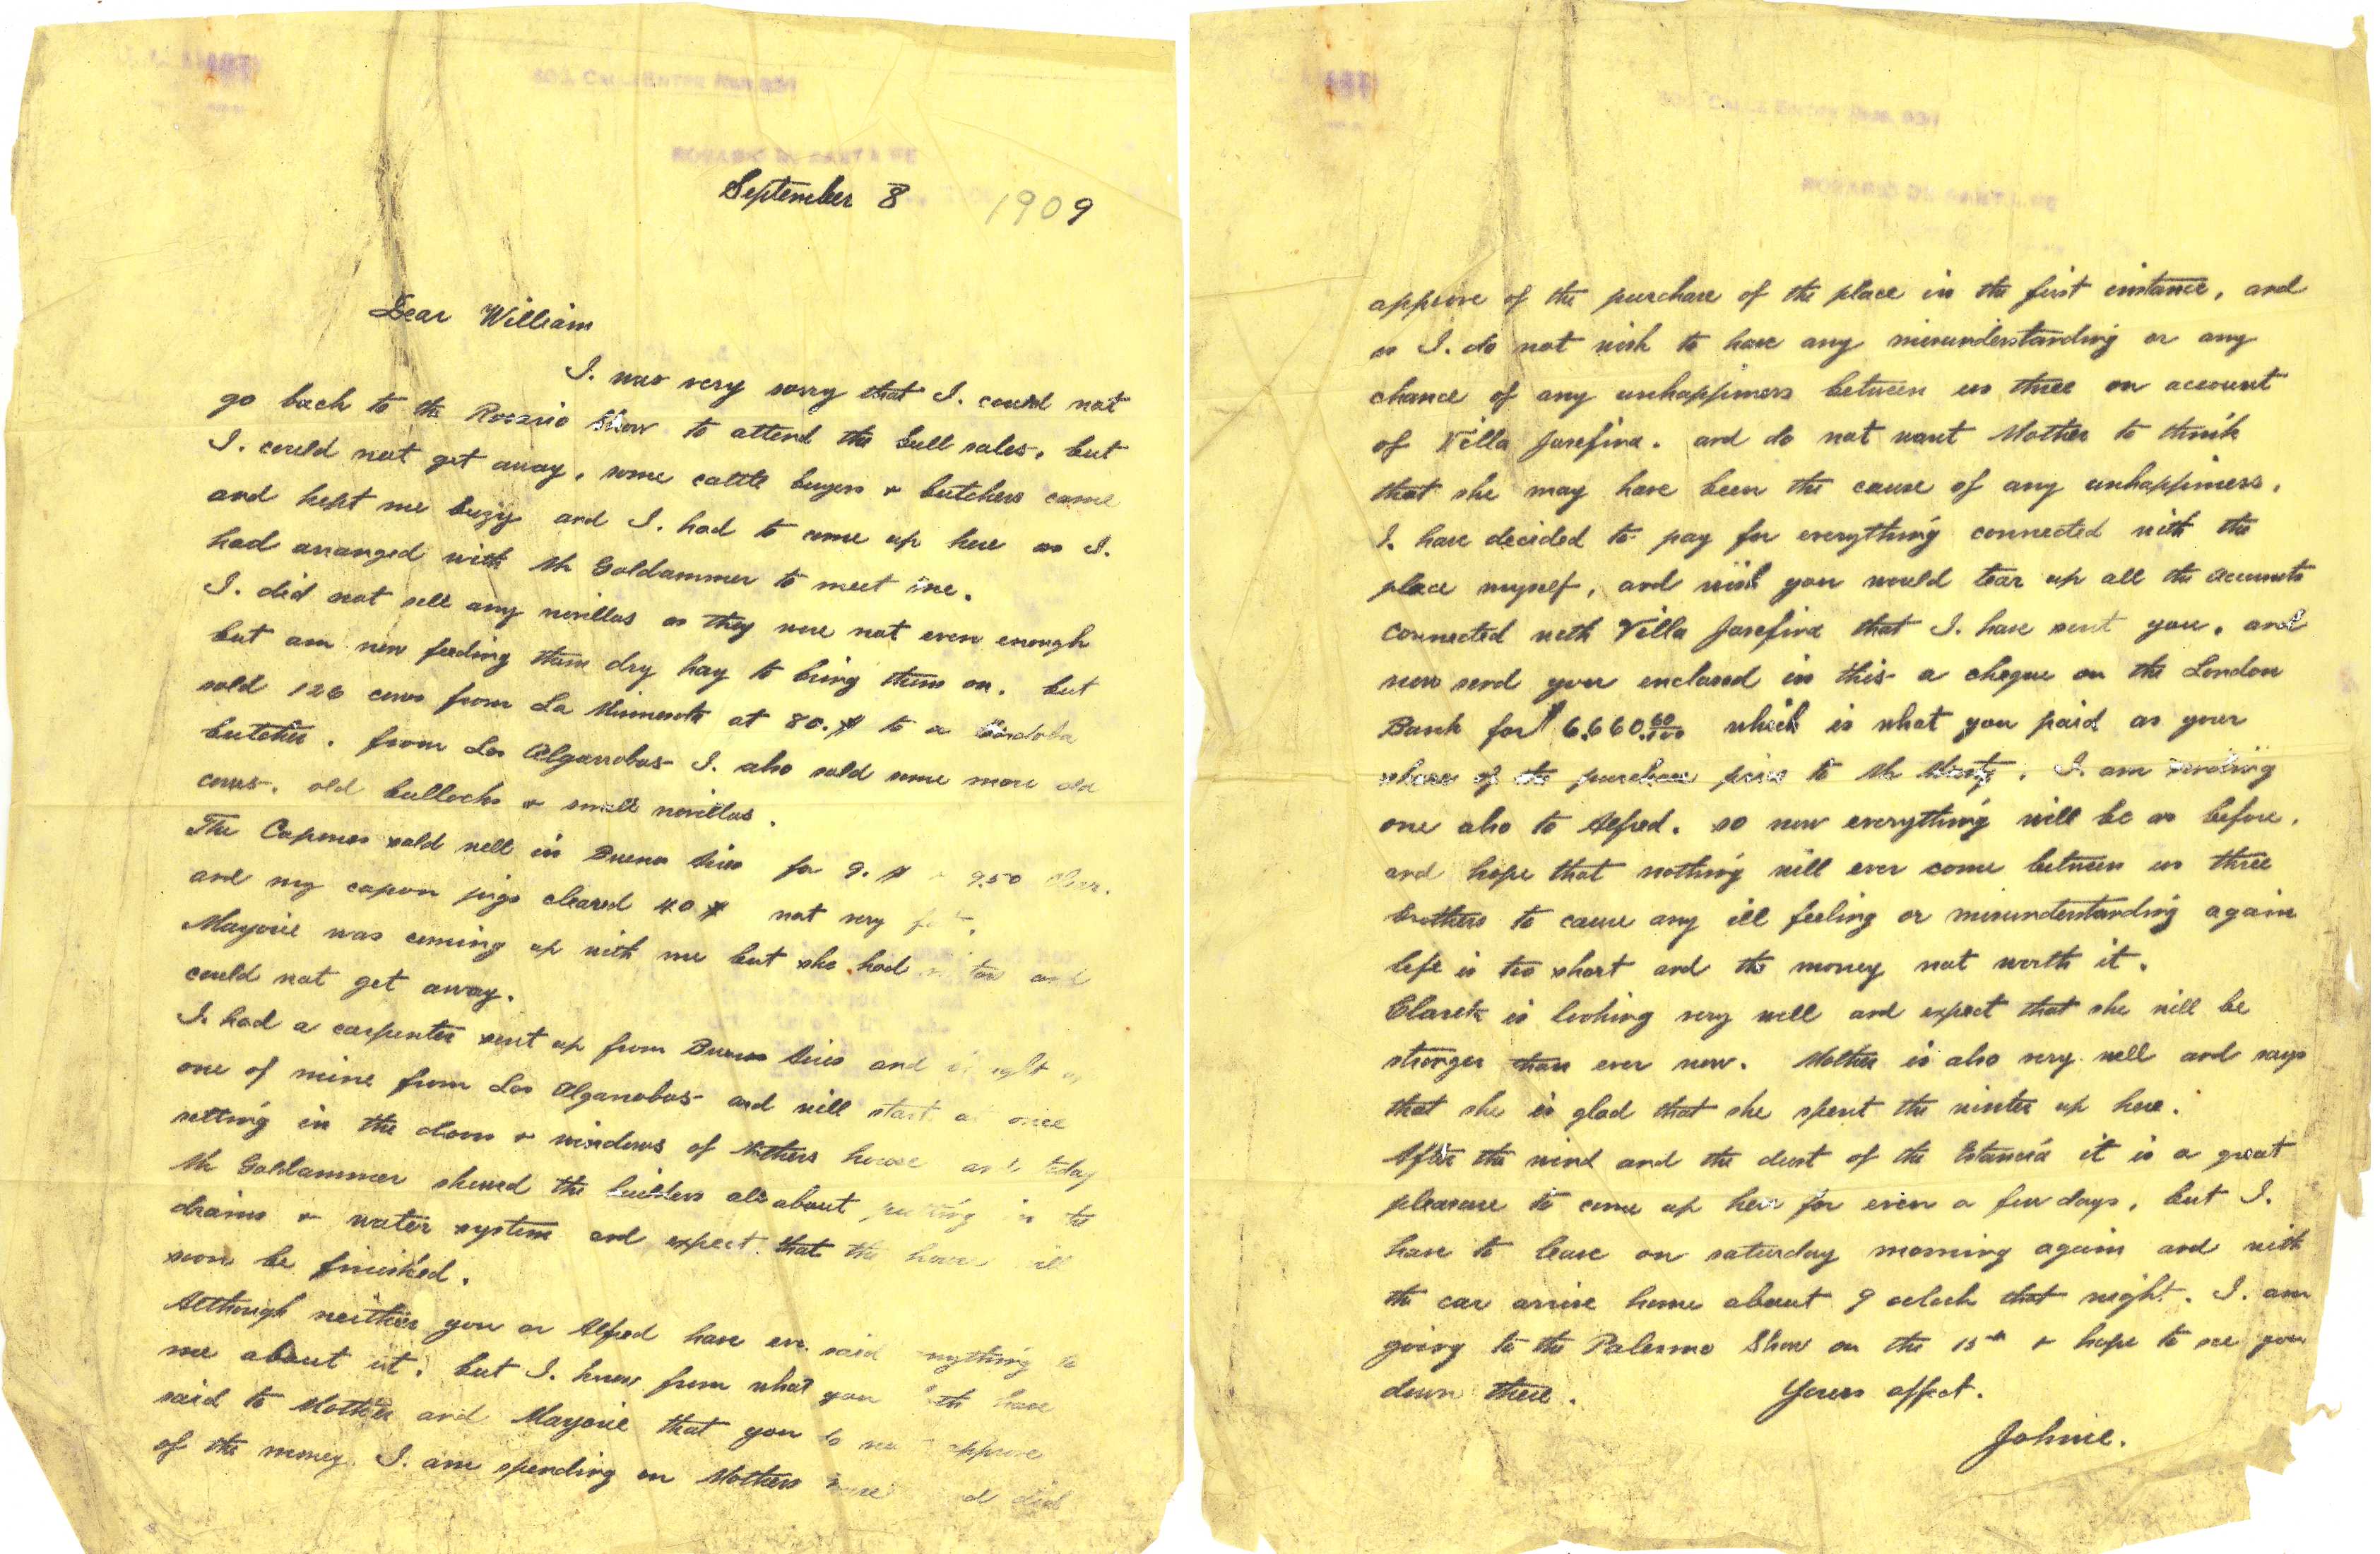 ROSARIO DE SANTA FE
September 8 1909
Dear William
I. was very sorry that I. could not
go back to the Rosario Show to attend the bull sales, but
I. could not get away, some cattle buyers & butchers came
and kept me buzy and I. had to come up here as I.
had arranged with Mr Goldammer to meet me.
I. did not sell any novillos as they were not even enough
but am now feeding them dry hay to bring them on. but
sold 126 cows from La Minnesota at 80.$ to a Cordoba
butcher. from Los Algarrobos I. also sold some more old
cows. old bullocks & small novillos.
The Capones sold well in Buenos Aires for 9.$ 9.50
and my capon pigs cleared 40 $ not very
Marjorie was coming up with me but she had and
could not get away.
I. had a carpenter sent up from Buenos Aires and
one of mine from Los Algarrobos and will start at once
setting in the doors & windows of Mothers house and today
Mr Goldammer showed the builders all about putting in the
drains & water system and expect that the house will
soon be finished.
Although neither you or Alfred have ever said anything to
me about it, but I. know from what you both have
said to Mother and Marjorie that you do not approve
of the money I. am spending on Mothers did
approve of the purchase of the place in the first instance, and
as I. do not wish to have any misunderstanding or any
chance of any unhappiness between us three on account
of Villa Josefina. and do not want Mother to think
that she may have been the cause of any unhappiness.
I. have decided to pay for everything connected with the
place myself, and wish you would tear up all the accounts
connected with Villa Josefina that I. have sent you, and
now send your enclosed in this a cheque on the London
Bank for $ 6.660.60/100 which is what you paid as your
share of the purchase price to Mr I. am sending
one also to Alfred. so now everything will be as before.
and hope that nothing will ever come between us three
brothers to cause any ill feeling or misunderstanding again
life is too short and the money not worth it.
is looking very well and expect that she will be
stronger than ever now. Mother is also very well and says
that she is glad that she spent the winter up here.
After the wind and the dust of the Estancia it is a great
pleasure to come up here for even a few days, but I.
have to leave on saturday morning again and with
the car arrive home about 9 oclock that night. I. am
going to the Palermo Show on the 15th & hope to see you
down there. Yours affect.
Johnie.